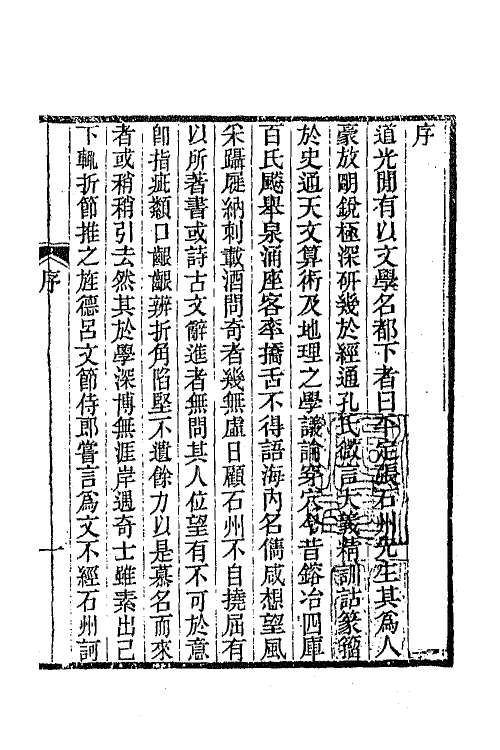 序
道光閒有以文學名都下者曰平定張石州先生其爲人
豪放明銳極深研幾於經通孔氏微言大義精訓詁篆籀
於史通天文算術及地理之學議論穿穴今昔鎔冶四庫
百氏飈舉泉涌座客率撟舌不得語海內名儒咸想望風
采躡屣納刺載酒問奇者幾無虛日顧石州不自撓屈有
以所著書或詩古文辭進者無問其人位望有不可於意
卽指疵纇口齗齗辨折角陷堅不遺餘力以是慕名而來
者或稍稍引去然其於學深博無涯岸遇奇士雖素出己
下輒折節推之旌德呂文節侍郎嘗言爲文不經石州訶
序
一